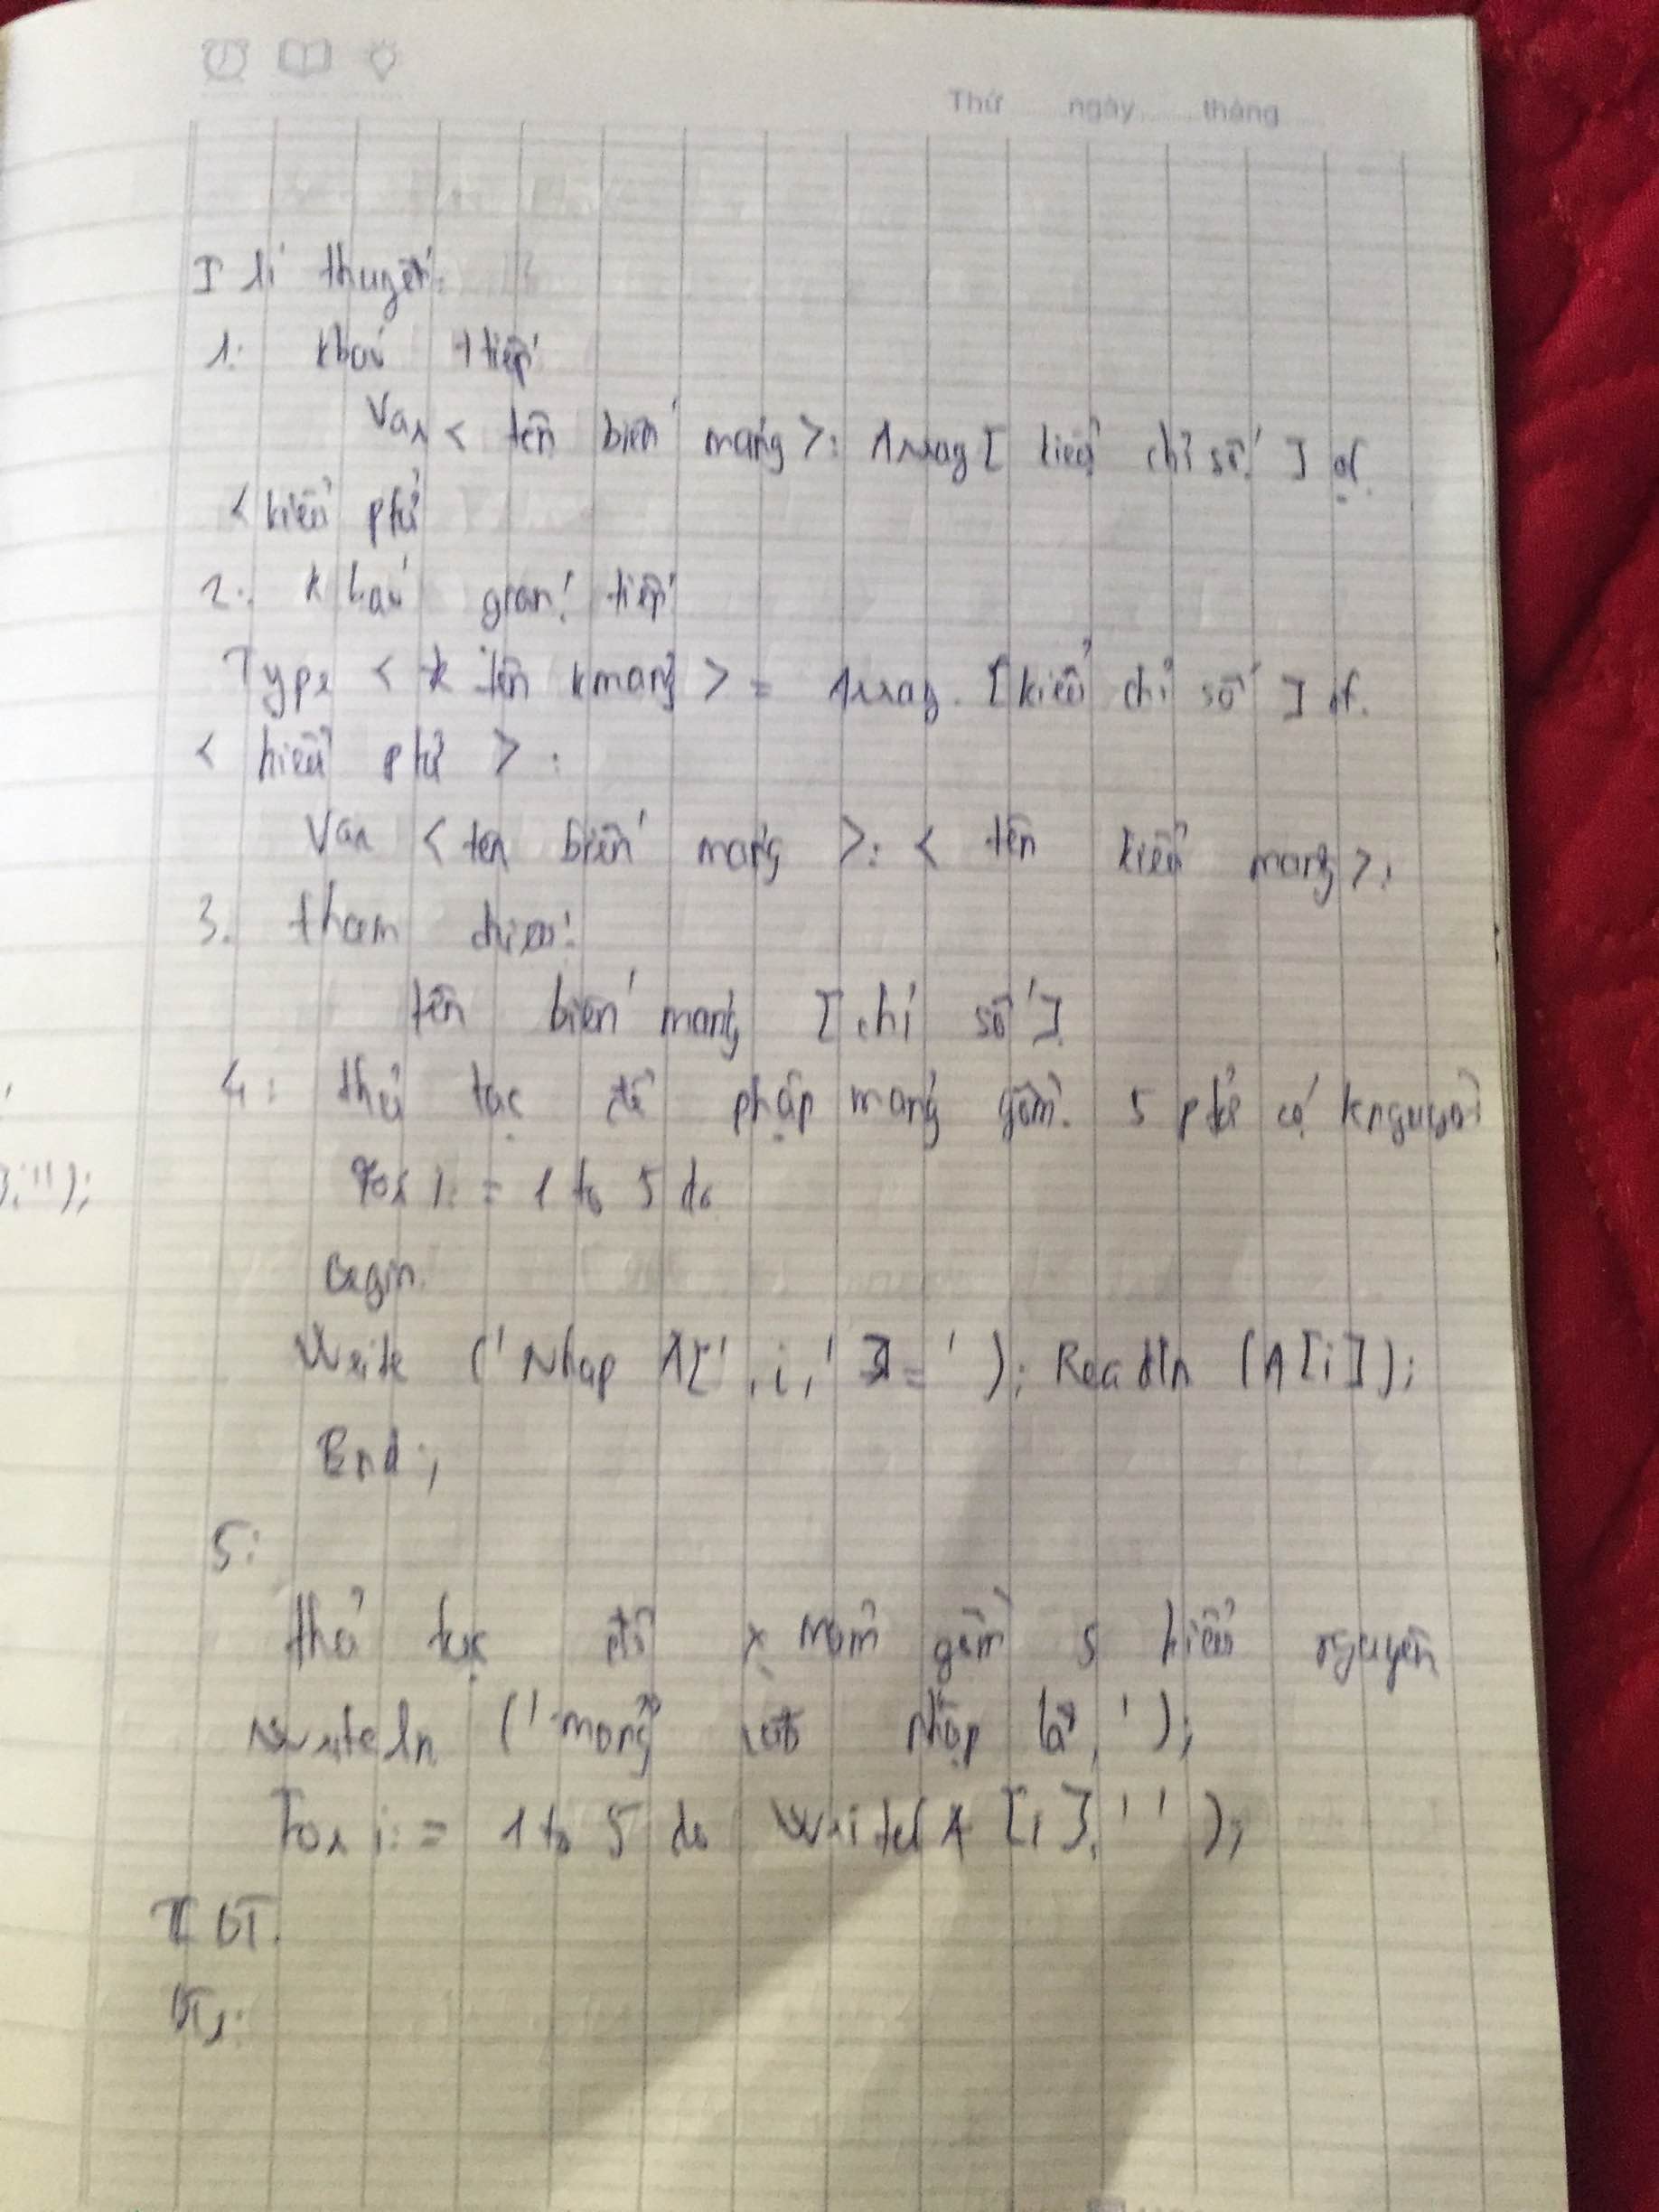 Thứ ngày tháng
I lí thuyết:
1: Khai t tiếp
Var < tên biến mảng >: Array [ kiểu chỉ số ] of
< kiểu ptử
2: Khai gián tiếp
Type < tên kmảng > = Array [ kiểu chỉ số ] of
< kiểu ptử > :
Var < ten biến mảng >: < tên kiểu mảng >;
3. tham chiếu:
tên biến mảng [ chỉ số ]
4: thủ tục để nhập mảng gồm 5 ptử có knguyên
For i: = 1 to 5 do
Begin
Write (' Nhap A[' , i, ' ]= ' ); Readln (A[i]);
End ;
5:
thủ tục để x gồm 5 kiểu nguyên
Writeln (' mảng nhập là, ' );
For i: = 1 to 5 do write( A [i], ' ' );
II BT.
B,'');